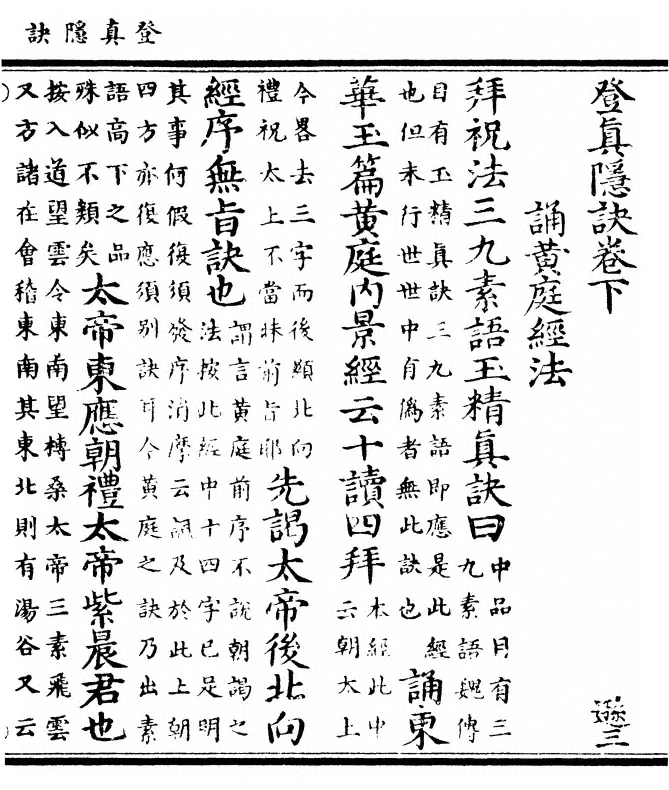 登真隱訣
登眞隱訣卷下
遜三
誦黄庭經法
拜祝法三九素語玉精眞訣曰
中品目有三
九素語魏傳
目有玉精眞訣三九素語即應是此經
也但未行世世中有僞者無此訣也
誦東
華玉篇黄庭內景經云十讀四拜
本經此中
云朝太上
今畧去三字而後願北向
禮祝太上不當昧前旨耶
先謁太帝後北向
經序無旨訣也
謂言黄庭前序不說朝謁之
法按此經中十四字已足明
其事何假復須發序消摩云誦及於此上朝
四方亦復應須別訣耳今黄庭之訣乃出素
語高下之品
殊似不類矣
太帝東應朝禮太帝紫晨君也
按入道望雲令東南望榑桑太帝三素飛雲
又方諸在會稽東南其東北則有湯谷又云